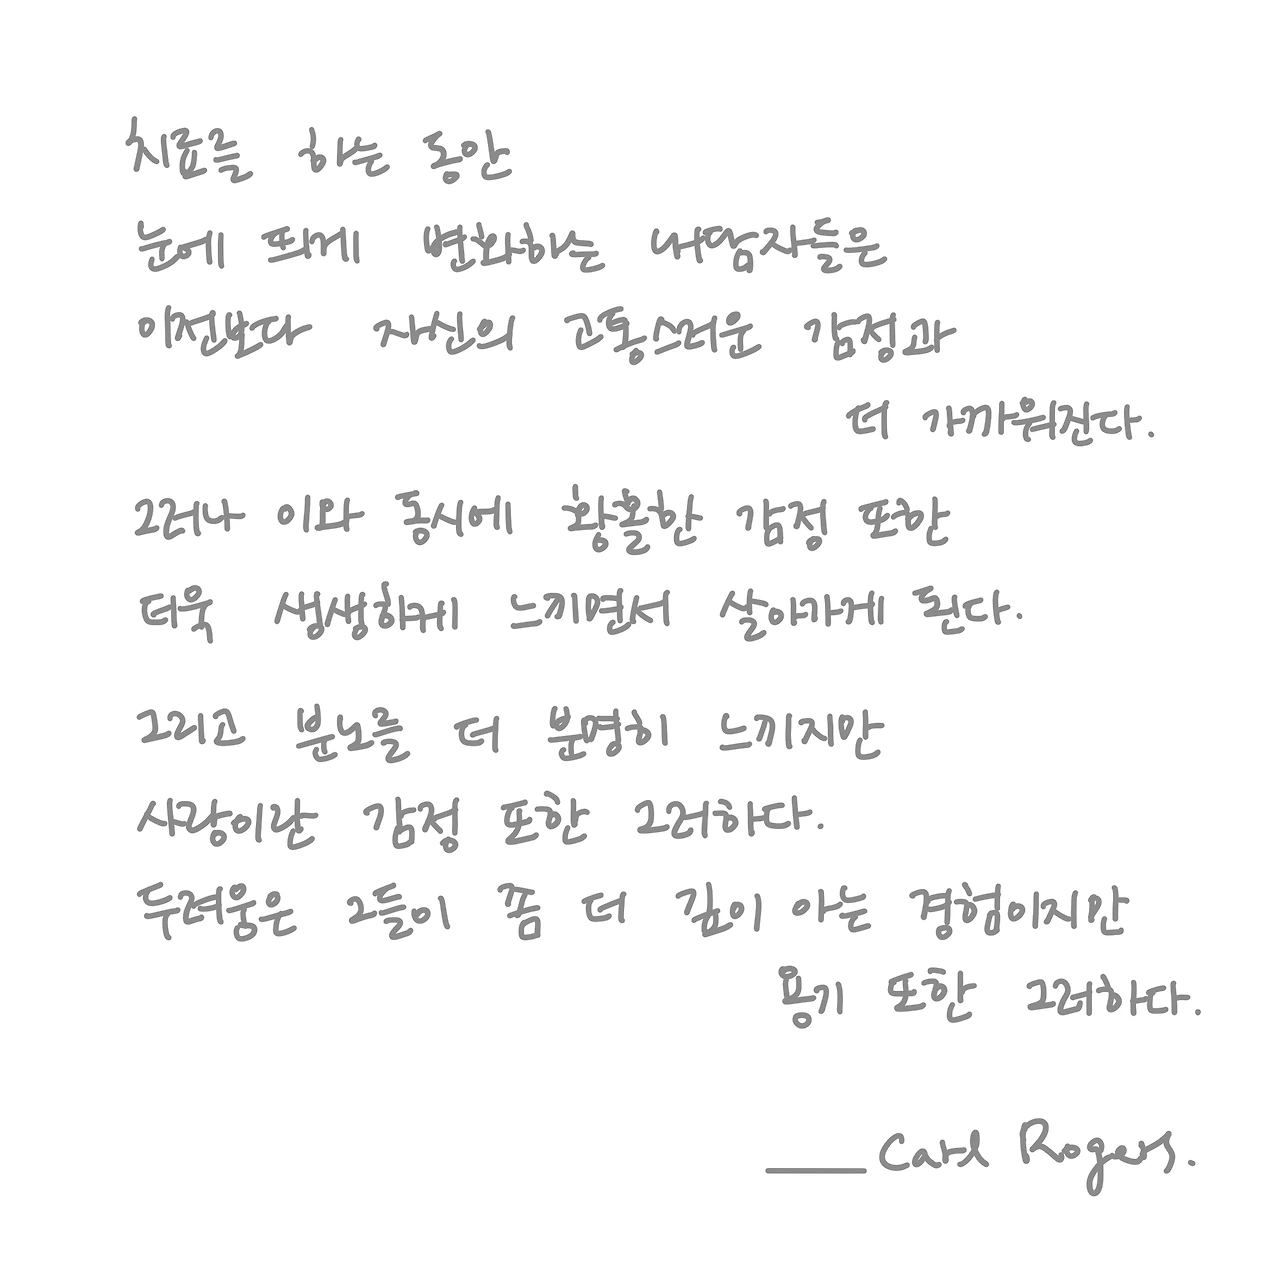 치료를 하는 동안
눈에 띄게 변화하는 내담자들은
이전보다 자신의 고통스러운 감정과
더 가까워진다.
그러나 이와 동시에 황홀한 감정 또한
더욱 생생하게 느끼면서 살아가게 된다.
그리고 분노를 더 분명히 느끼지만
사랑이란 감정 또한 그러하다.
두려움은 그들이 좀 더 깊이 아는 경험이지만
용기 또한 그러하다.
Carl Rogers.